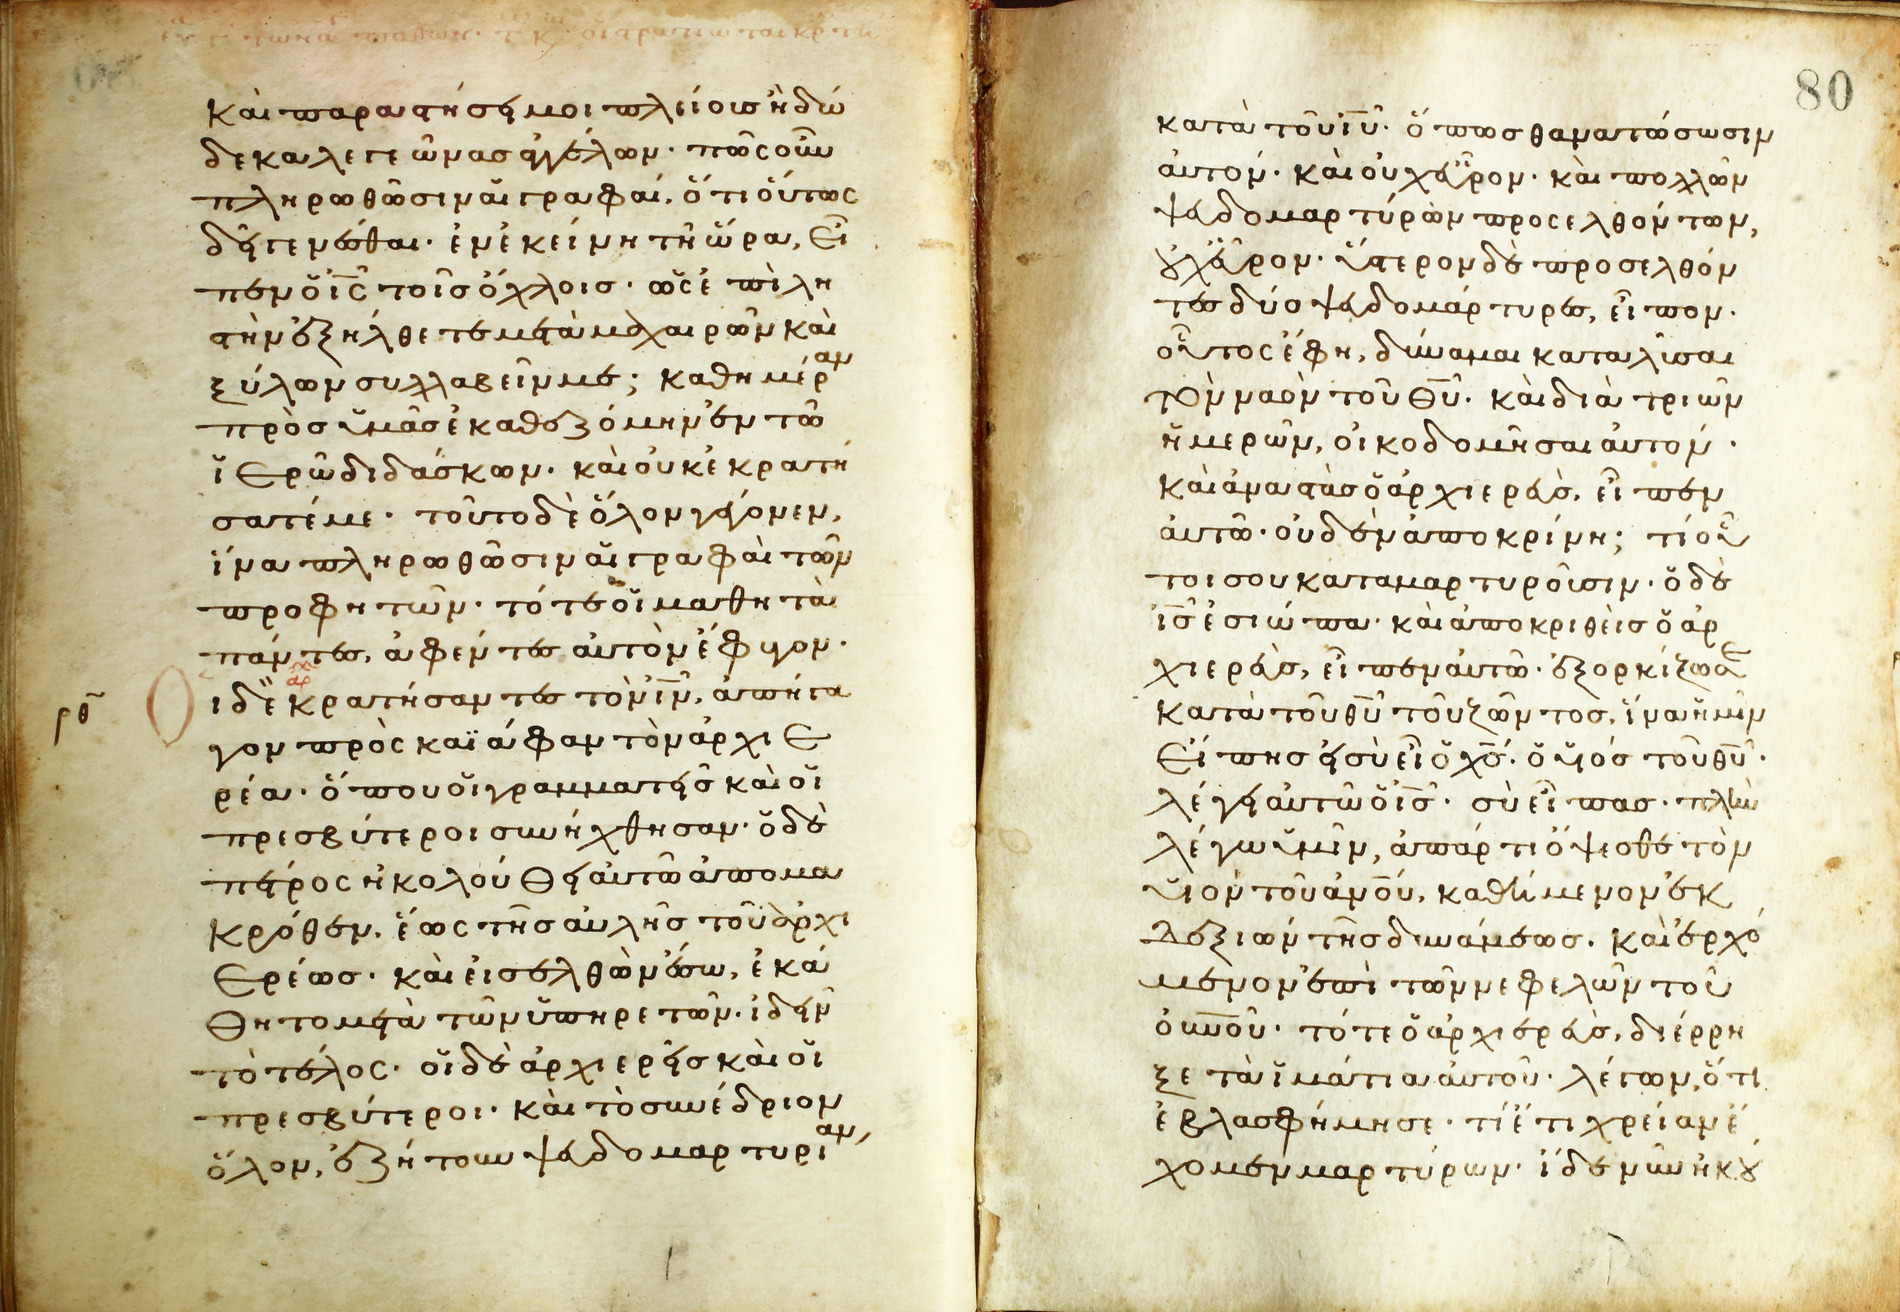 και παραστήσει μοι πλείους ἢ δώ
δεκα λεγεῶνας ἀγγέλων· πῶς οὖν
πληρωθῶσιν αἱ γραφαί, ὅτι οὕτως
δεῖ γενέσθαι· ἐν ἐκείνη τῆ ὥρα, εἶ
πεν ὁ ις τοῖς ὄχλοις· ὡς ἐπὶ λη
στὴν ἐξήλθετε μετὰ μαχαιρῶν καὶ
ξύλων συλλαβεῖν με; καθημέραν
πρὸς ὑμᾶς ἐκαθεζόμην ἐν τῶ
ἱερῶ διδάσκων· καὶ οὐκ ἐκρατή
σατέ με· τοῦτο δὲ ὅλον γέγονεν,
ἵνα πληρωθῶσιν αἱ γραφαὶ τῶν
προφητῶν· τότε οἱ μαθηταὶ
πάντες, ἀφέντες αὐτὸν ἔφυγον·
ρθ Οἱ δὲ κρατήσαντες τὸν ιν, ἀπήγα
γον πρὸς καϊάφαν τὸν ἀρχιε
ρέα· ὅπου οἱ γραμματεῖς καὶ οἱ
πρεσβύτεροι συνήχθησαν· ὁ δὲ
πέτρος ἠκολούθει αὐτῶ ἀπομα
κρόθεν, ἕως τῆς αὐλῆς τοῦ ἀρχι
ερέως· καὶ εἰσελθὼν ἔσω, ἐκά
θητο μετὰ τῶν ὑπηρετῶν· ἰδεῖν
τὸ τέλος· οἱ δὲ ἀρχιερεῖς καὶ οἱ
πρεσβύτεροι· καὶ τὸ συνέδριον
ὅλον, ἐζήτουν ψευδομαρτυρίαν,
80
κατὰ τοῦ ιυ· ὅπως θανατώσωσιν
αὐτόν· καὶ οὐχ εὗρον· καὶ πολλῶν
ψευδομαρτύρων προσελθόντων,
οὐχ εὗρον· ὕστερον δὲ προσελθόν
τες δύο ψευδομάρτυρες, εἶπον·
οὗτος ἔφη, δύναμαι καταλῦσαι
τὸν ναὸν τοῦ θυ· καὶ διὰ τριῶν
ἡμερῶν, οἰκοδομῆσαι αὐτόν·
καὶ ἀναστὰς ὁ ἀρχιερεὺς, εἶπεν
αὐτῶ· οὐδὲν ἀποκρίνη; τί οὗ
τοι σου καταμαρτυροῦσιν· ὁ δὲ
ις ἐσιώπα· καὶ ἀποκριθεὶς ὁ ἀρ
χιερεὺς, εἶπεν αὐτῶ· ἐξορκίζω σε
κατὰ τοῦ θυ τοῦ ζῶντος, ἵνα ἡμῖν
εἴπης εἰ σὺ εἶ ὁ χς· ὁ υἱός τοῦ θυ·
λέγει αὐτῶ ὁ ις· σὺ εἶπας· πλὴν
λέγω ὑμῖν, ἀπάρτι ὄψεσθε τὸν
υἱὸν τοῦ ανου, καθήμενον ἐκ
δεξιῶν τῆς δυνάμεως· καὶ ἐρχό
μενον ἐπὶ τῶν νεφελῶν τοῦ
ουνου· τότε ὁ ἀρχιερεὺς, διέρρη
ξε τὰ ἱμάτια αὐτοῦ· λέγων, ὅτι
ἐβλασφήμησε· τί ἔτι χρείαν ἔ
χομεν μαρτύρων· ἴδε νῦν ἠκού